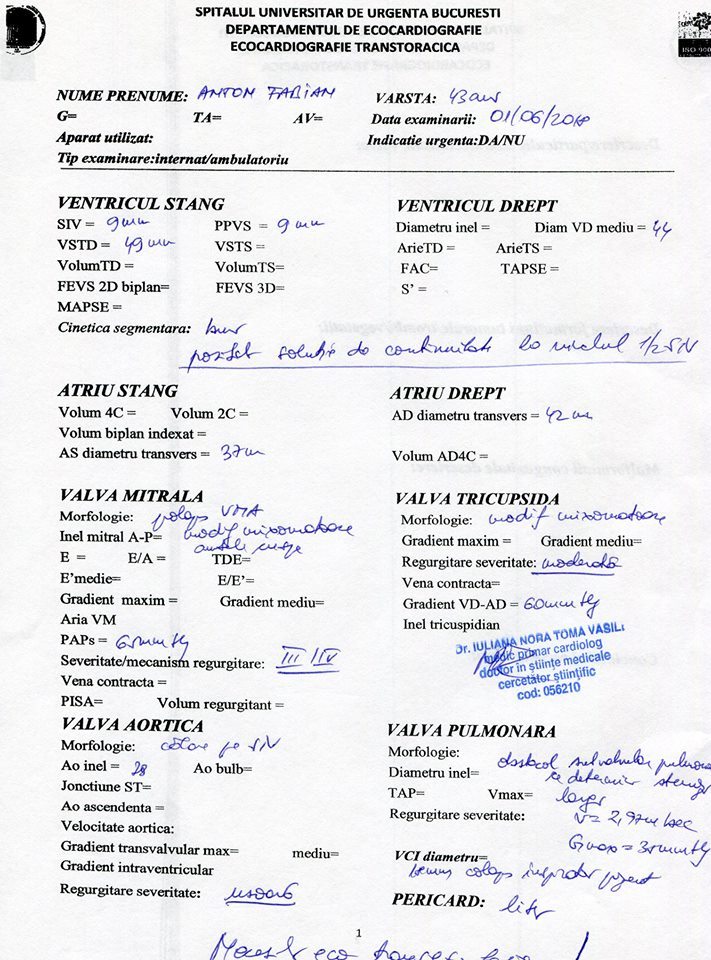 SPITALUL UNIVERSITAR DE URGENTA BUCURESTI
DEPARTAMENTUL DE ECOCARDIOGRAFIE
ECOCARDIOGRAFIE TRANSTORACICA
ISO 900
NUME PRENUME: ANTON FABIAN VARSTA: 43 ani
G= TA= AV= Data examinarii: 01/06/2010
Aparat utilizat: Indicatie urgenta:DA/NU
Tip examinare:internat/ambulatoriu
VENTRICUL STANG VENTRICUL DREPT
SIV = 9 mm PPVS = 9 mm Diametru inel = Diam VD mediu = 44
VSTD = 49 mm VSTS = ArieTD = ArieTS =
VolumTD = VolumTS= FAC= TAPSE =
FEVS 2D biplan= FEVS 3D= S' =
MAPSE =
Cinetica segmentara: buna
solutie de continuitate la nivelul 1/2 SIV
ATRIU STANG ATRIU DREPT
Volum 4C = Volum 2C = AD diametru transvers = 42 mm
Volum biplan indexat =
AS diametru transvers = 37 mm Volum AD4C =
VALVA MITRALA VALVA TRICUPSIDA
Morfologie: prolaps VMA Morfologie: modif mixomatoase
Inel mitral A-P= modif mixomatoase Gradient maxim = Gradient mediu=
ambele cuspe
E = E/A = TDE= Regurgitare severitate: moderata
E'medie= E/E'= Vena contracta=
Gradient maxim = Gradient mediu= Gradient VD-AD = 60 mmHg
Aria VM Inel tricuspidian
PAPs = 65 mmHg
Dr. IULIANA NORA TOMA VASILE
medic primar cardiolog
doctor in ştiinţe medicale
cercetător ştiinţific
cod: 056210
Severitate/mecanism regurgitare: III/IV
Vena contracta =
PISA= Volum regurgitant =
VALVA AORTICA VALVA PULMONARA
Morfologie: calare pe SIV Morfologie: obstacol subvalvular pulmonar
Ao inel = 28 Ao bulb= Diametru inel= ce determina
Jonctiune ST= TAP= Vmax=
Ao ascendenta = Regurgitare severitate: V = 2,97 m/sec
Velocitate aortica: Gmax = 35 mmHg
Gradient transvalvular max= mediu= VCI diametru=
Gradient intraventricular colaps inspirator prezent
Regurgitare severitate: usoara PERICARD: liber
1
eco